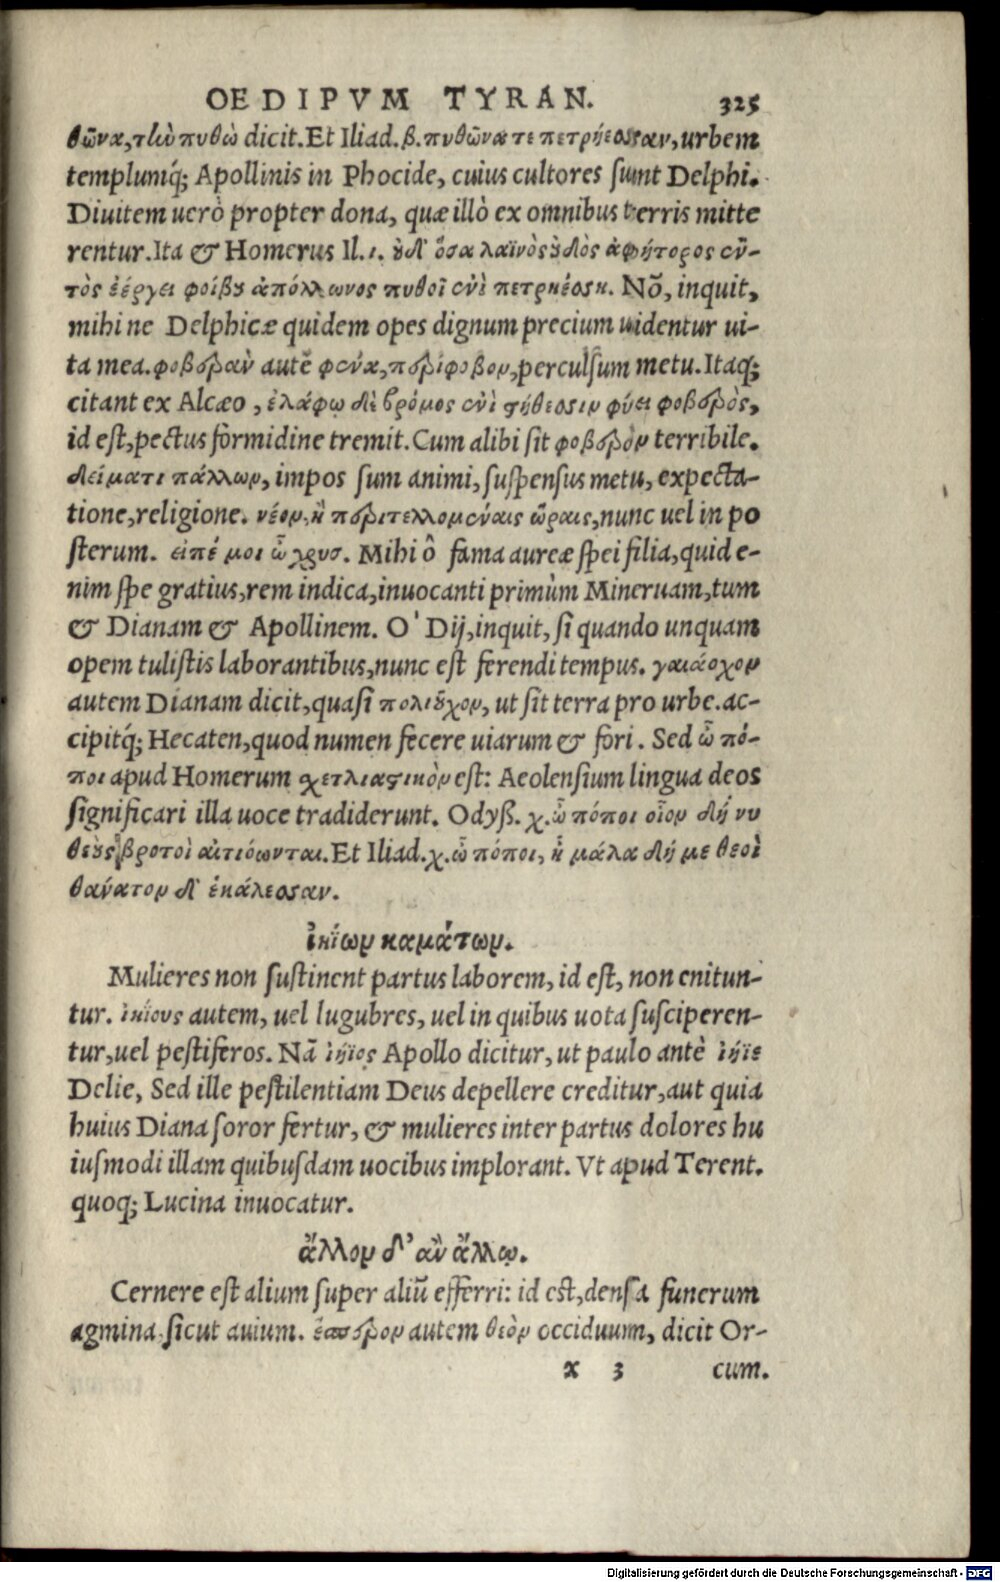 OEDIPVM TYRAN. 325
θῶνα, τὴν πυθὼ dicit. Et Iliad. β. πυθῶνα τε πετρήεσσαν, urbem
templumq́; Apollinis in Phocide, cuius cultores sunt Delphi.
Diuitem uerò propter dona, quæ illò ex omnibus terris mitte
rentur. Ita & Homerus Il. ι. οὐδ' ὅσα λαϊνὸς οὐδὸς ἀφήτορος ἐν-
τὸς ἐέργει φοίβου ἀπόλλωνος πυθοῖ ἐνὶ πετρηέσσῃ. Nõ, inquit,
mihi ne Delphicæ quidem opes dignum precium uidentur ui-
ta mea. φοβερὰν autẽ φρένα, περίφοβον, perculsum metu. Itaq;
citant ex Alcæo, ἐλάφω δὲ βρόμος ἐνὶ στήθεσιν φύει φοβερὸς,
id est, pectus formidine tremit. Cum alibi sit φοβερὸν terribile.
δείματι πάλλων, impos sum animi, suspensus metu, expecta-
tione, religione. νέον, ἢ περιτελλομέναις ὥραις, nunc uel in po
sterum. εἰπέ μοι ὦ χρυσ. Mihi ô fama aureæ spei filia, quid e-
nim spe gratius, rem indica, inuocanti primùm Mineruam, tum
& Dianam & Apollinem. O' Dij, inquit, si quando unquam
opem tulistis laborantibus, nunc est ferendi tempus. γαιάοχον
autem Dianam dicit, quasi πολιοῦχον, ut sit terra pro urbe. ac-
cipitq́; Hecaten, quod numen fecere uiarum & fori. Sed ὦ πό-
ποι apud Homerum σχετλιαστικὸν est: Aeolensium lingua deos
significari illa uoce tradiderunt. Odyß. χ. ὦ πόποι οἷον δή νυ
θεοὺς βροτοὶ αἰτιόωνται. Et Iliad. χ. ὦ πόποι, ἦ μάλα δή με θεοὶ
θανάτον δ' ἐκάλεσσαν.
ἰηΐων καμάτων.
Mulieres non sustinent partus laborem, id est, non enitun-
tur. ἰηΐους autem, uel lugubres, uel in quibus uota susciperen-
tur, uel pestiferos. Nã ἰήϊος Apollo dicitur, ut paulo antè ἰήϊε
Delie, Sed ille pestilentiam Deus depellere creditur, aut quia
huius Diana soror fertur, & mulieres inter partus dolores hu
iusmodi illam quibusdam uocibus implorant. Vt apud Terent.
quoq; Lucina inuocatur.
ἄλλον δ' ἂν ἄλλῳ.
Cernere est alium super aliũ efferri: id est, densa funerum
agmina sicut auium. ἕσπερον autem θεὸν occiduum, dicit Or-
x 3 cum.
Digitalisierung gefördert durch die Deutsche Forschungsgemeinschaft - DFG